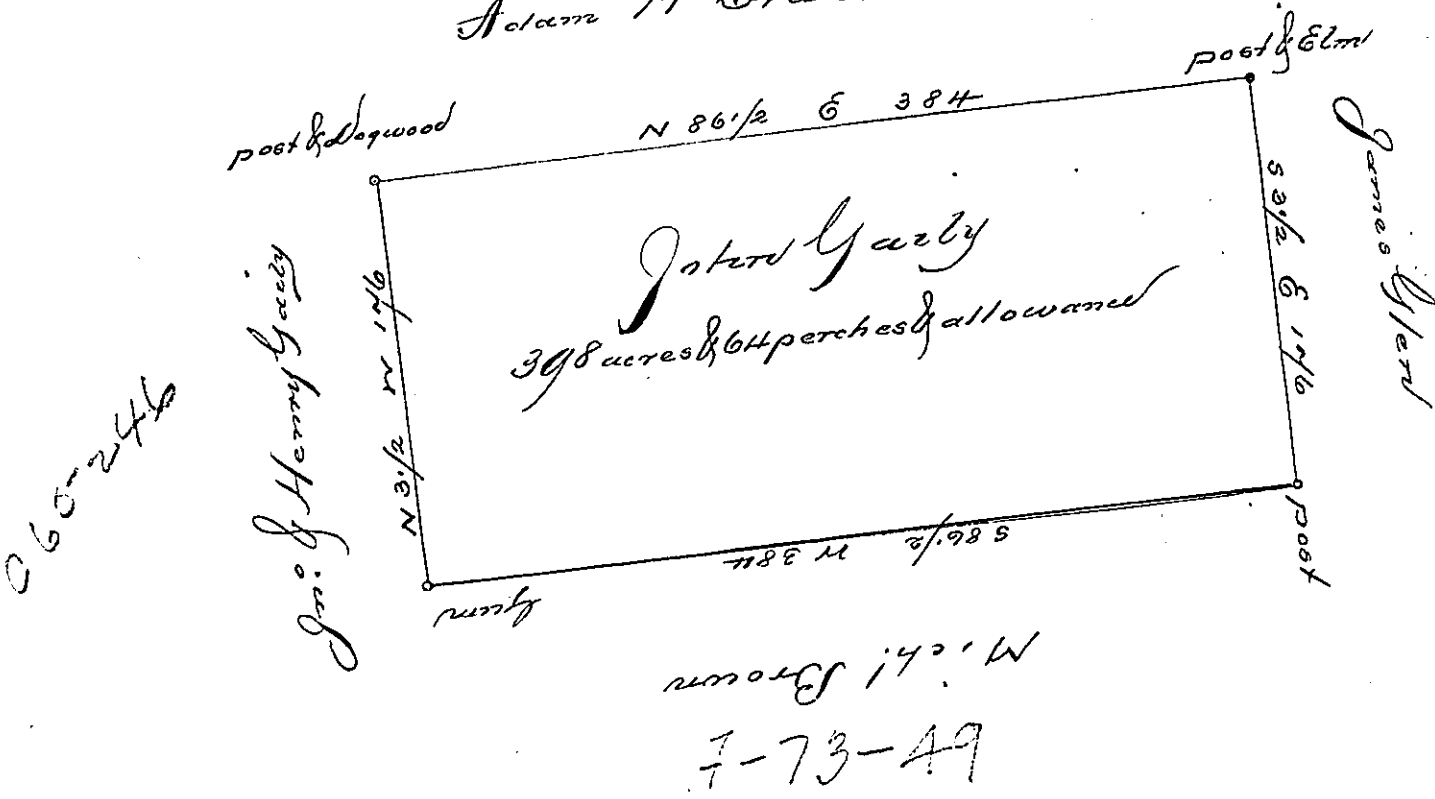 Adam
post & Elm
post & Dogwood
N 86 1/2 E 384
James Glen
S 3 1/2 E 176
John Gazly
398 acres & 64 perches & allowance
N 3 1/2 W 176
& Henry Gazly
C60-246
S 86 1/2 W 384
post
Gum
Michl Brown
7-73-49